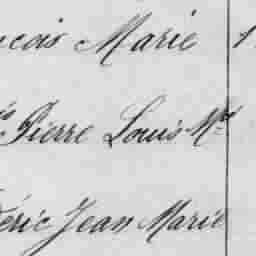 ncois Marie 1
s Pierre Louis Mie
déric Jean Marie